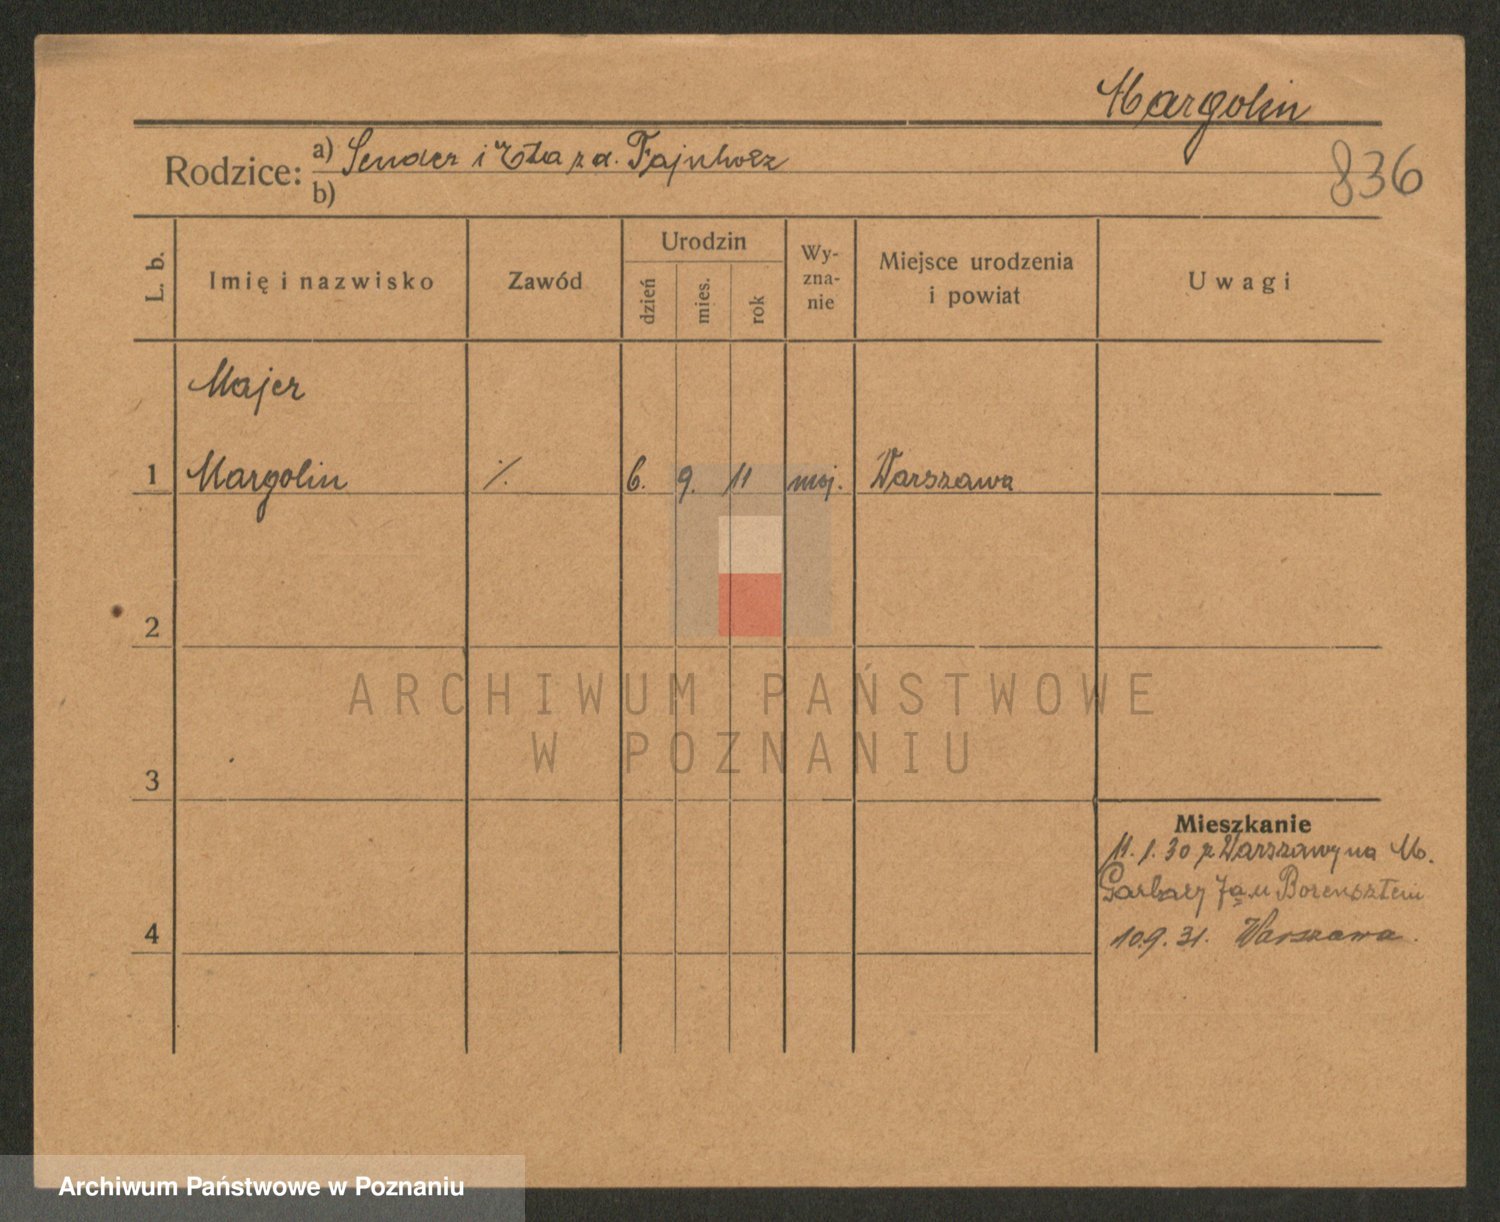 Margolin
Rodzice: a) Sender i Etta z d. Fajnholz
b)
836
L. b.
Imię i nazwisko
Zawód
Urodzin
dzień
mies.
rok
Wy-
zna-
nie
Miejsce urodzenia
i powiat
Uwagi
Majer
1 Margolin ·/. 6. 9. 11 moj. Warszawa
2
3
4
Mieszkanie
11. 1. 30 z Warszawy na M.
Garbary 7a u Borensztein
10.9. 31. Warszawa.
ARCHIWUM PAŃSTWOWE
W POZNANIU
Archiwum Państwowe w Poznaniu